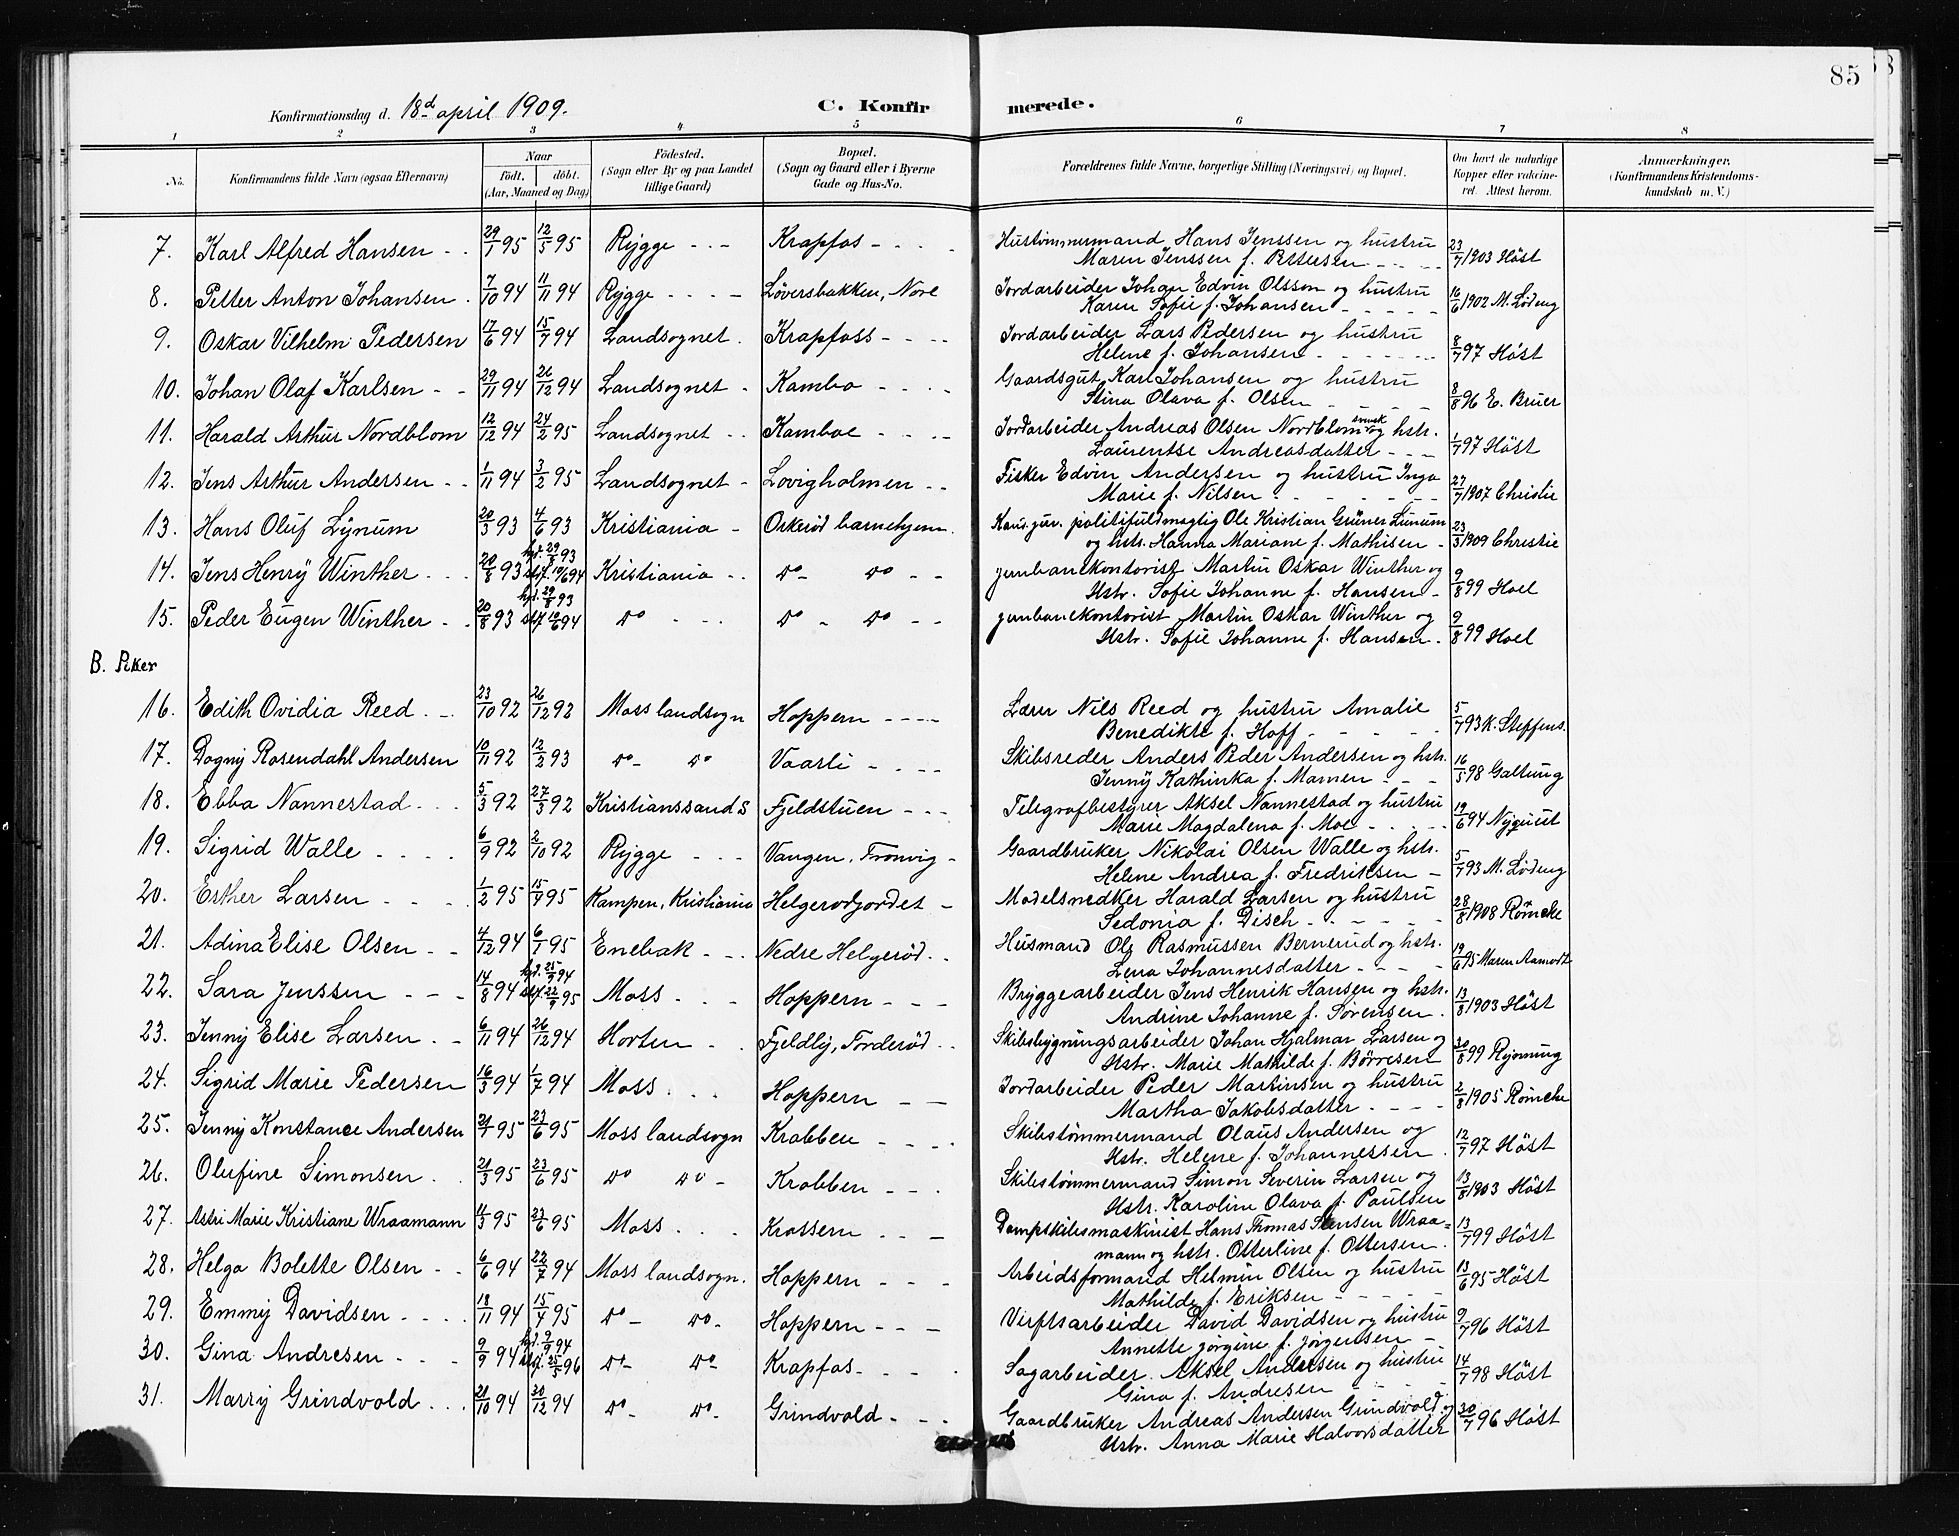 85
Konfirmationsdag d. 18d april 1909. C. Konfirmerede.
1 2 3 4 5 6 7 8
No. Konfirmandens fulde Navn (ogsaa Efternavn) Naar født. døbt. (Aar, Maaned og Dag) Födested. (Sogn eller By og paa Landet tillige Gaard) Bopæl. (Sogn og Gaard eller i Byerne Gade og Hus-No. Forældrenes fulde Navne, borgerlige Stilling (Næringsvei) og Bopæl. Om havt de naturlige Kopper eller vakcineret. Attest herom. Anmærkninger. (Konfirmandens Kristendomskundskab m. V.)
7. Karl Alfred Hansen 29/1 95 12/5 95 Rygge Krapfos Hustømmermand Hans Jenssen og hustru 23/7 1903 Höst
Maren Jenssen f. Pettersen
8. Petter Anton Johansen 7/10 94 11/11 94 Rygge Løversbakken, Nore Jordarbeider Johan Edvin Olsson og hustru 16/6 1902 M. Lödeng
Karen Sofie f. Johansen
9. Oskar Vilhelm Pedersen 17/6 94 15/7 94 Landsognet Krapfoss Jordarbeider Lars Pedersen og hustru 8/7 97 Höst
Helene f. Johansen
10. Johan Olaf Karlsen 29/11 94 26/12 94 Landsognet Kambo Gaardsgut Karl Johansen og hustru 8/8 96 E. Bruer
Stina Olava f. Olsen
11. Harald Arthur Nordblom 12/12 94 24/2 95 Landsognet Kamboe Jordarbeider Andreas Olsen Nordblom svensk og hstr. 1/7 97 Höst
Laurentse Andreasdatter
12. Jens Arthur Andersen 1/11 94 3/2 95 Landsognet Lovigholmen Fisker Edvin Andersen og hustru Inga 27/7 1907 Christie
Marie f. Nilsen
13. Hans Oluf Lynum 20/3 93 4/6 93 Kristiania Orkerød barnehjem Kons. jur. politifuldmægtig Ole Kristian Grüner Lünum 23/3 1909 Christie
og hstr. Hanna Mariane f. Mathisen
14. Jens Henry Winther 20/8 93 hjd. 29/8 93 stf. 10/6 94 Kristiania do do jernbanekontorist Martin Oskar Winther og 9/8 99 Hoel
Hstr. Sofie Johanne f. Hansen
15. Peder Eugen Winther 20/8 93 hjd. 29/8 93 stf. 10/6 94 do do do jernbanekontorist Martin Oskar Winther og 9/8 99 Hoel
Hstr. Sofie Johanne f. Hansen
B. Piker
16. Edith Ovidia Reed 23/10 92 26/12 92 Moss landsogn Hoppern Lærer Nils Reed og hustru Amalie 5/7 93 K. Steffens.
Benedikte f. Hoff
17. Dagny Rosendahl Andersen 10/11 92 12/2 93 do do Vaarli Skibsreder Anders Peder Andersen og hstr. 16/5 98 Galtung
Jenny Kathinka f. Mamen
18. Ebba Nannestad 5/3 92 27/3 92 Kristianssand S Fjeldstuen Telegrafbestyrer Aksel Nannestad og hustru 19/6 94 Nyquist
Marie Magdalena f. Moe
19. Sigrid Walle 6/9 92 2/10 92 Rygge Vangen, Fronvig Gaardbruker Nikolai Olsen Walle og hstr. 5/7 93 M. Lödeng
Helene Andrea f. Fredriksen
20. Esther Larsen 1/2 95 15/9 95 Kampen, Kristiania Helgerodjordet Modelsnedker Harald Larsen og hustru 28/8 1908 Römcke
Sedonia f. Disch
21. Adina Elise Olsen 4/12 94 6/1 95 Enebak Nedre Helgerød Husmand Ole Rasmussen Bernerud og hstr. 19/6 95 Maren Aamodt
Lena Johannesdatter
22. Sara Jenssen 14/8 94 hjd. 25/9 94 stf. 22/9 95 Moss Hoppern Bryggearbeider Jens Henrik Hansen og hstr. 13/8 1903 Höst
Andrine Johanne f. Sørensen
23. Jenny Elise Larsen 6/11 94 26/12 94 Horten Fjeldly, Forderød Skibsbygningsarbeider Johan Hjalmar Larsen og 30/8 99 Ryoning
Hstr. Marie Mathilde f. Børresen
24. Sigrid Marie Pedersen 16/3 94 1/7 94 Moss Hoppern Jordarbeider Peder Martinsen og hustru 2/8 1905 Römcke
Martha Jakobsdatter
25. Jenny Konstance Andersen 21/1 95 23/6 95 Moss landsogn Krabben Skibstømmermand Olaus Andersen og 12/7 97 Höst
Hstr. Helene f. Johannessen
26. Olufine Simonsen 21/3 95 23/6 95 do do Krabben Skibstømmermand Simon Severin Larsen og 13/8 1903 Höst
Hstr. Karoline Olava f. Paulsen
27. Astri Marie Kristiane Wraamann 4/3 95 23/6 95 Moss Krossern Dampskibsmaskinist Hans Thomas Jensen Wraa= 13/7 99 Höst
mann og hstr. Otterline f. Ottersen
28. Helga Bolette Olsen 6/6 94 22/7 94 Moss landsogn. Hoppern Arbeidsformand Helmin Olsen og hustru 13/6 95 Höst
Mathilde f. Eriksen
29. Emmy Davidsen 18/11 94 15/4 95 do do Hoppern Verftsarbeider David Davidsen og hustru 9/7 96 Höst
Annette Jørgine f. Jørgensen
30. Gina Andresen 9/9 94 hjd. 9/9 94 stf. 25/5 96 do do Krapfos Sagarbeider Aksel Andersen og hustru 14/7 98 Höst
Gina f. Andresen
31. Marry Grindvold 21/10 94 30/12 94 do do Grindvold Gaardbruker Andreas Andersen Grindvold og 30/7 96 Höst
Hstr. Anna Marie Halvorsdatter